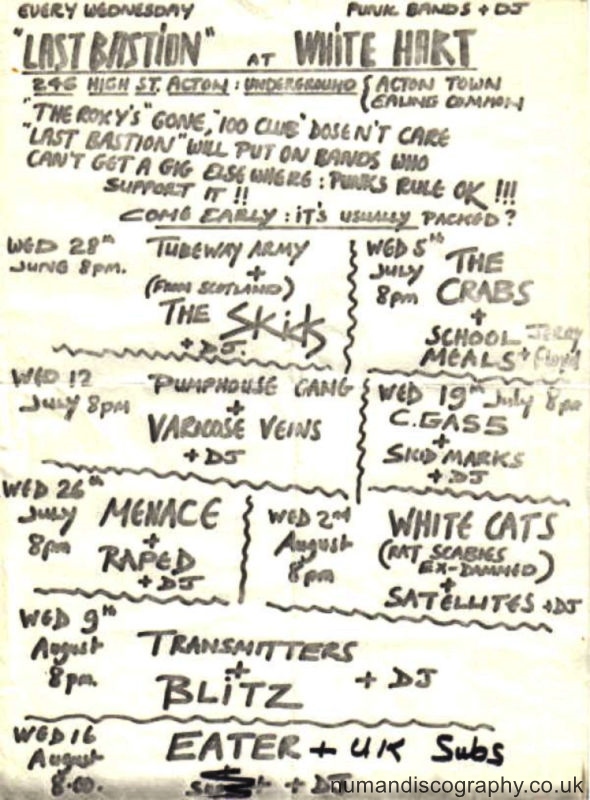 EVERY WEDNESDAY PUNK BANDS + DJ
"LAST BASTION" AT WHITE HART
246 HIGH ST. ACTON : UNDERGROUND { ACTON TOWN
EALING COMMON
"THE ROXY'S" GONE, "100 CLUB" DOSEN'T CARE
"LAST BASTION" WILL PUT ON BANDS WHO
CAN'T GET A GIG ELSEWHERE : PUNKS RULE OK !!!
SUPPORT IT !!
COME EARLY : IT'S USUALLY PACKED ?
WED 28th
JUNE 8pm.
TUBEWAY ARMY
+
(FROM SCOTLAND)
THE SKIDS
+ DJ.
WED 5th
JULY
8pm
THE
CRABS
+
SCHOOL
MEALS +
JERRY
Floyd
WED 12
July 8pm
PUMPHOUSE GANG
+
VARICOSE VEINS
+ DJ
WED 19th July 8pm
C. GAS 5
+
SKID MARKS
+ DJ
WED 26th
July
8pm
MENACE
+
RAPED
+ DJ
WED 2nd
August
8pm
WHITE CATS
(RAT SCABIES
EX-DAMNED)
+
SATELLITES + DJ
WED 9th
August
8pm.
TRANSMITTERS
+
BLITZ
+ DJ
WED 16
August
8.00.
EATER + UK Subs
+ + DJ
numandiscography.co.uk